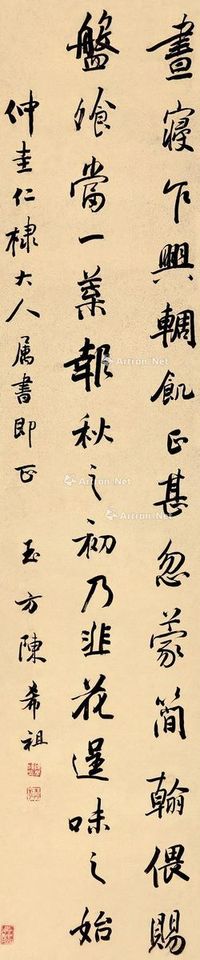 晝寢乍興輖飢正甚忽蒙簡翰偎賜
盤飱當一葉報秋之初乃韭花逞味之始
仲圭仁棣大人属書即正
玉方陳希祖
Artron.Net
Artron.Net